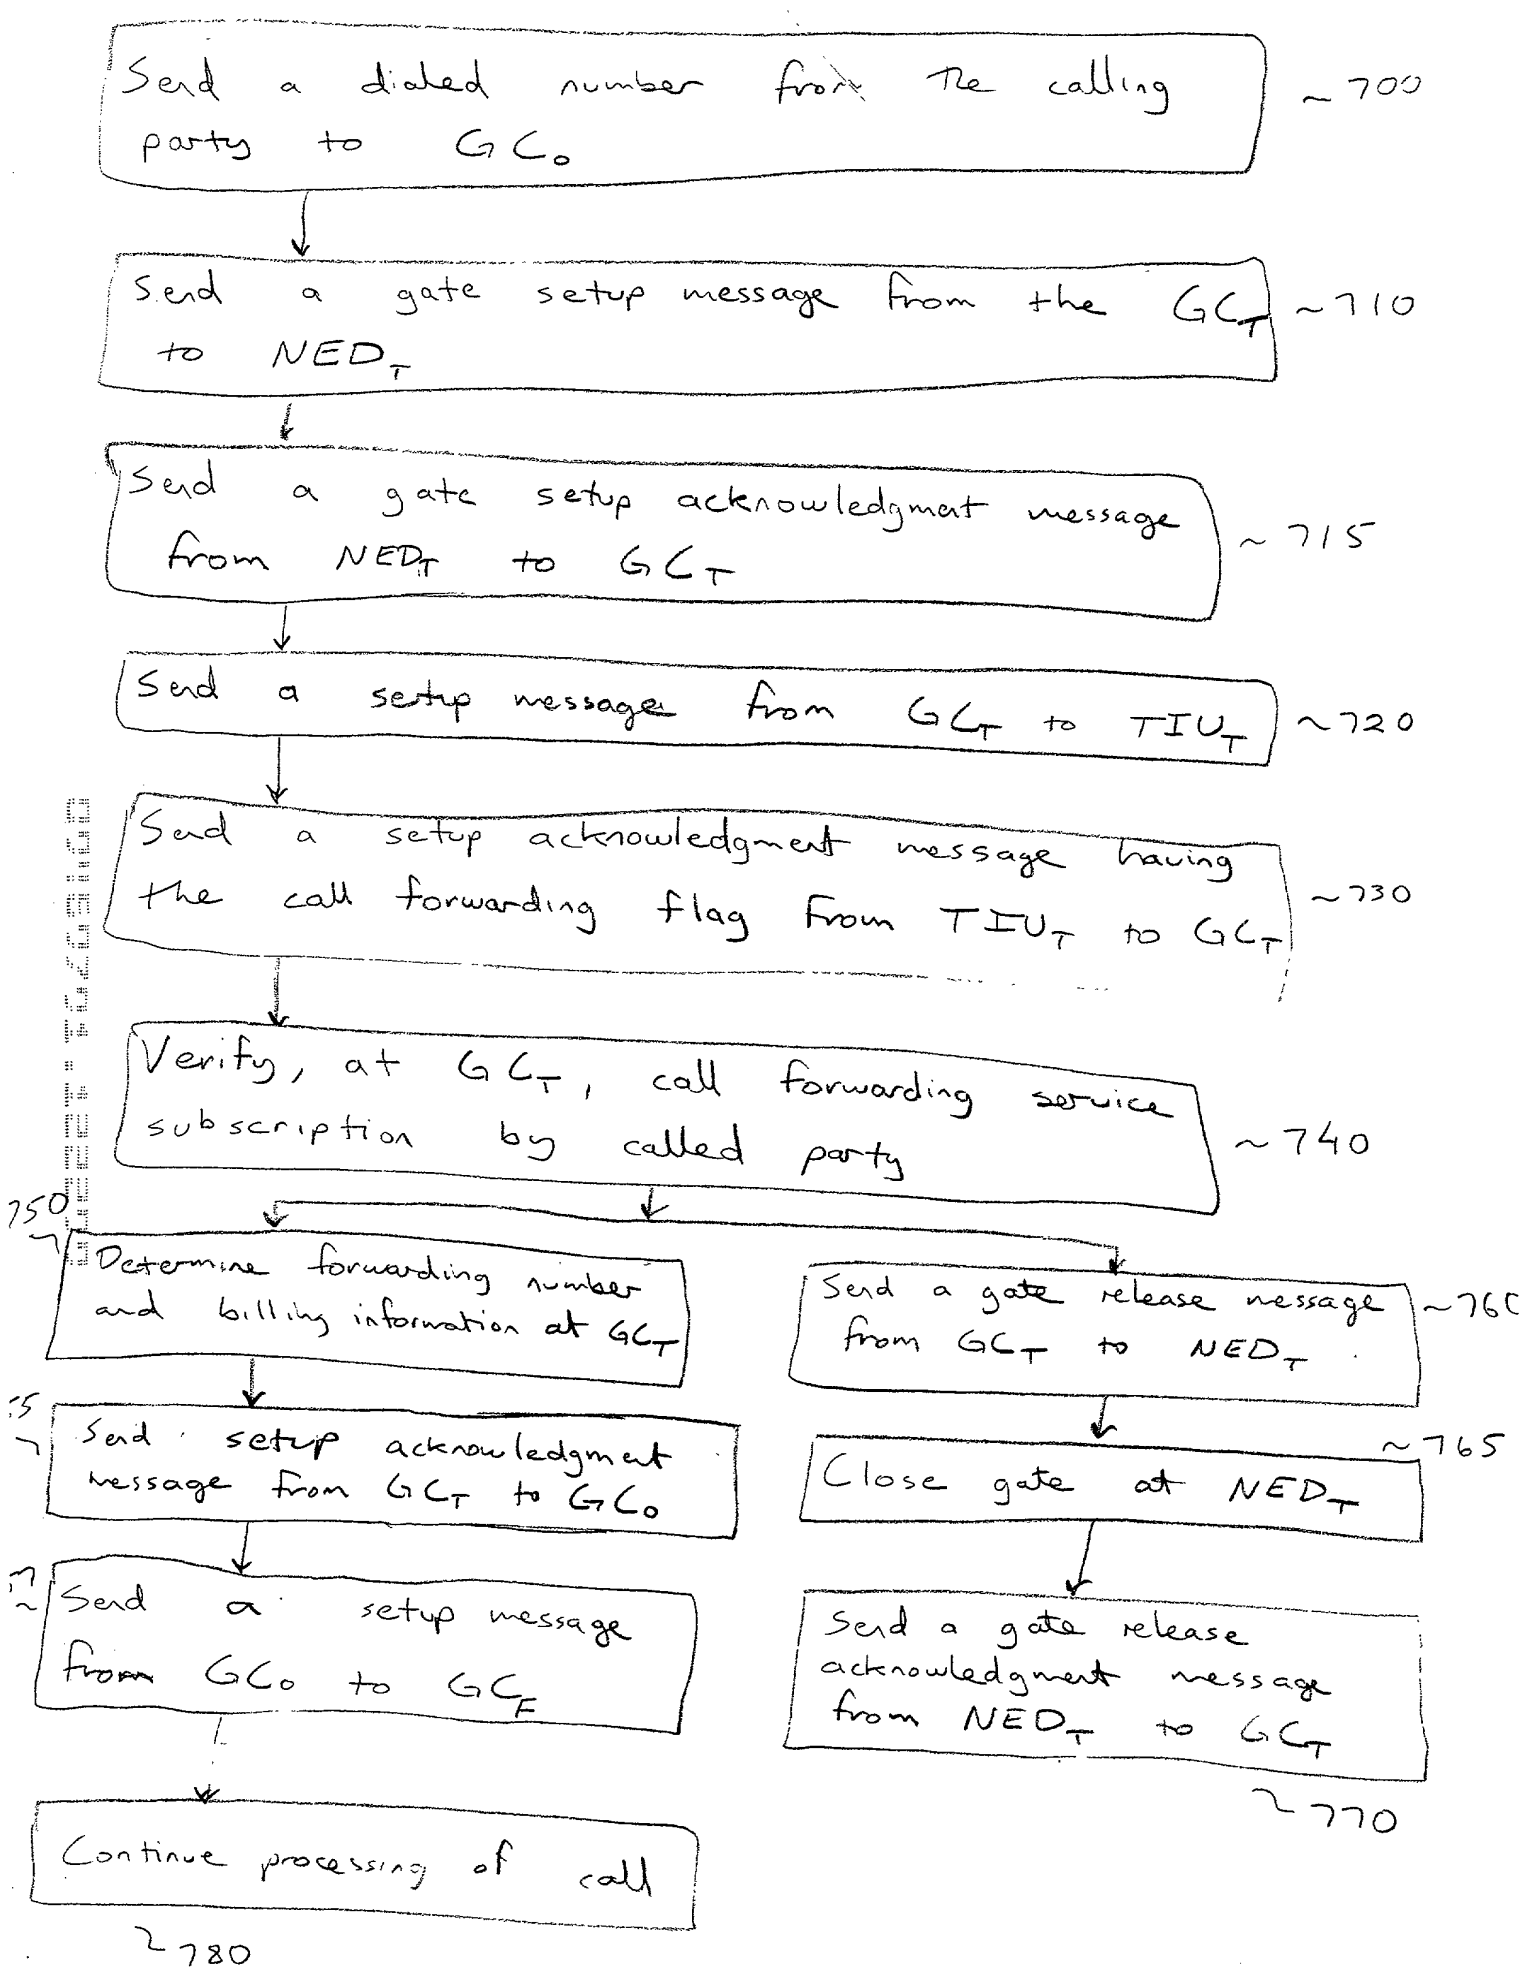 Send a dialed number from the calling ~700
party to GCO
Send a gate setup message from the GCT ~710
to NEDT
Send a gate setup acknowledgment message
from NEDT to GCT ~715
Send a setup message from GCT to TIUT ~720
Send a setup acknowledgment message having
the call forwarding flag from TIUT to GCT ~730
Verify, at GCT, call forwarding service
subscription by called party ~740
750
Determine forwarding number
and billing information at GCT
Send setup acknowledgment
message from GCT to GCO
Send a setup message
from GCO to GCF
Continue processing of call
~780
Send a gate release message
from GCT to NEDT
~765
Close gate at NEDT
Send a gate release
acknowledgment message
from NEDT to GCT
~770